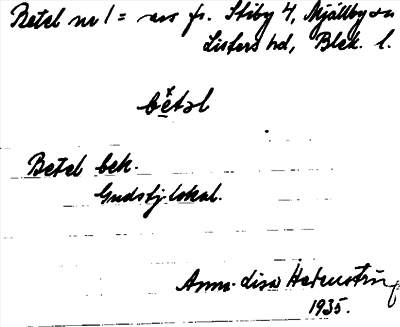 Betel nr 1 = avs fr. Stiby 4, Mjällby sn
Listers hd, Blek. l.
bètəl
Betel bek.
Gudstj. lokal.
Anna-Lisa Hedenström
1935.